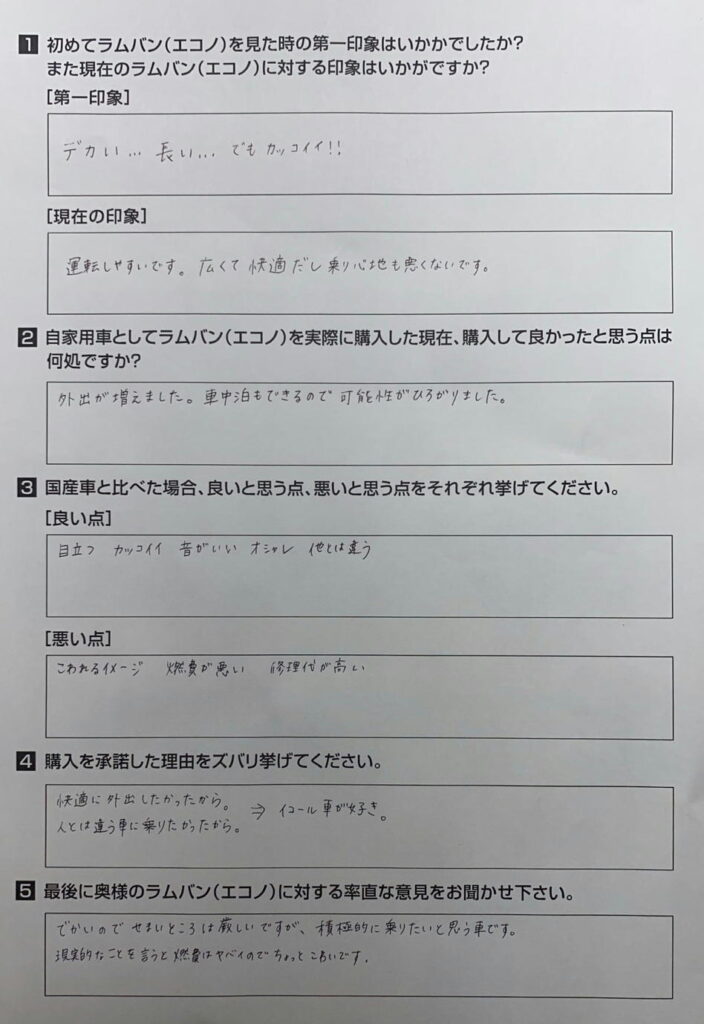 1 初めてラムバン(エコノ)を見た時の第一印象はいかかでしたか?
また現在のラムバン(エコノ)に対する印象はいかがですか?
[第一印象]
デカい… 長い… でも カッコイイ!!
[現在の印象]
運転しやすいです。広くて 快適だし 乗り心地も悪くないです。
2 自家用車としてラムバン(エコノ)を実際に購入した現在、購入して良かったと思う点は
何処ですか?
外出が増えました。車中泊もできるので 可能性がひろがりました。
3 国産車と比べた場合、良いと思う点、悪いと思う点をそれぞれ挙げてください。
[良い点]
目立つ カッコイイ 音がいい オシャレ 他とは違う
[悪い点]
こわれるイメージ 燃費が悪い 修理代が高い
4 購入を承諾した理由をズバリ挙げてください。
快適に外出したかったから。 ⇒ イコール車が好き。
人とは違う車に乗りたかったから。
5 最後に奥様のラムバン(エコノ)に対する率直な意見をお聞かせ下さい。
でかいので せまいところは厳しいですが、積極的に乗りたいと思う車です。
現実的なことを言うと燃費はヤバイのでちょっとこわいです.